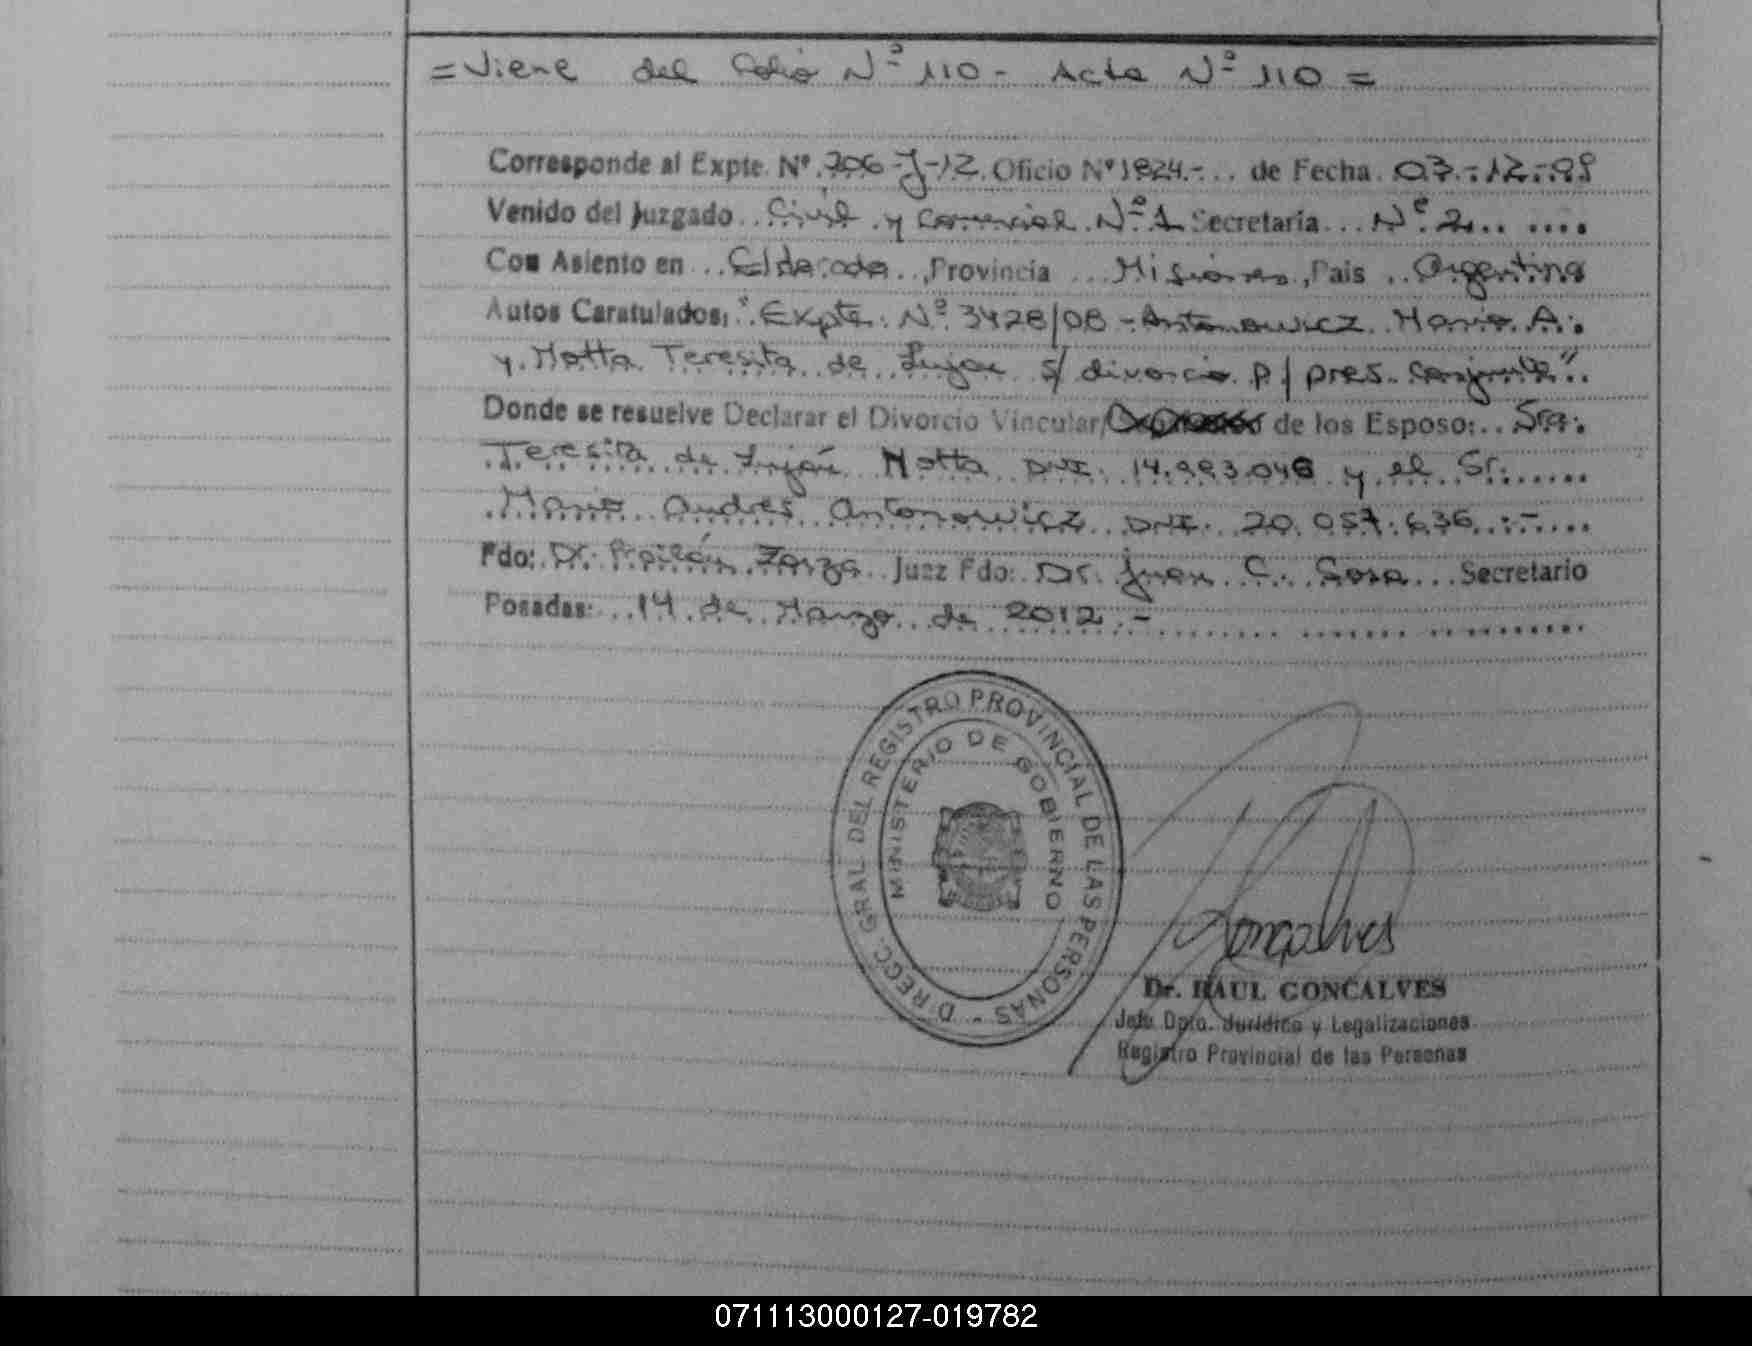 = Viene del Folio Nº 110 - Acta Nº 110 =
Corresponde al Expte. Nº 706-J-12. Oficio Nº 1824.-.. de Fecha. 03.-.12.-.
Venido del Juzgado.. Civil y Comercial. Nº.1 Secretaria... Nº. 2.. ....
Con Asiento en ...Eldorado..,Provincia ...Misiones.,Pais ..Argentina
Autos Caratulados: "Expte. Nº. 3428/08 - Antonowicz. Mario. A.
y. Motta. Teresita. de. Lujan s/ divorcio. p/ pres. conjunta"..
Donde se resuelve Declarar el Divorcio Vincular/ de los Esposo:.. Sra:.
Teresita de Luján Motta DNI. 14.993.046 y. el. Sr:......
Mario Andres Antonowicz.. DNI. 20.057.636..-....
Fdo: Dr. Froilán Zarza.. Juez Fdo: Dr. Juan. C. Sosa...Secretario
Posadas:...14. de. Marzo.. de. 2012.-
DIRECC. GRAL. DEL REGISTRO PROVINCIAL DE LAS PERSONAS -
MINISTERIO DE GOBIERNO
Gonçalves
Dr. RAUL GONCALVES
Jefe Dpto. Jurídico y Legalizaciones
Registro Provincial de las Personas
071113000127-019782